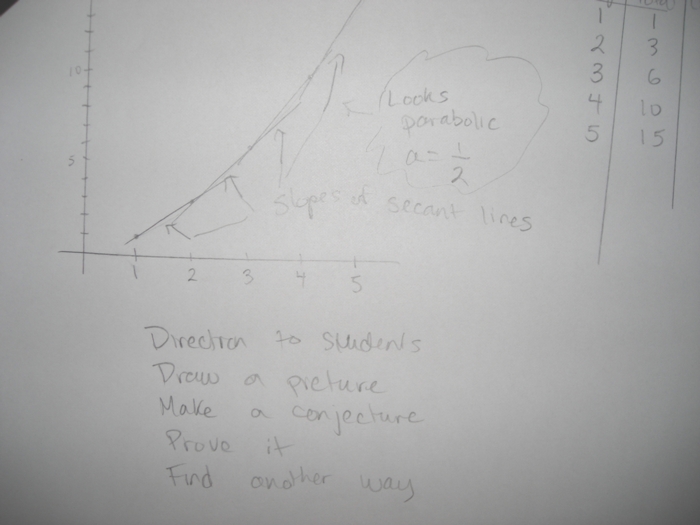 10
5
1 2 3 4 5
Looks
parabolic
a = 1/2
Slopes of secant lines
1 1
2 3
3 6
4 10
5 15
Direction to students
Draw a picture
Make a conjecture
Prove it
Find another way